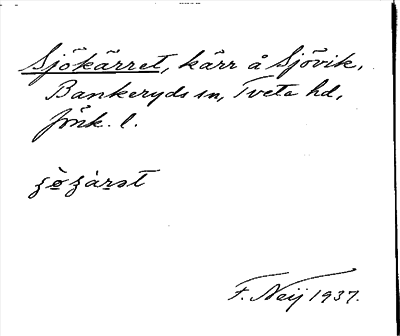 Sjökärret, kärr å Sjövik,
Bankeryds sn, Tveta hd,
Jönk. l.
F. Neij 1937.